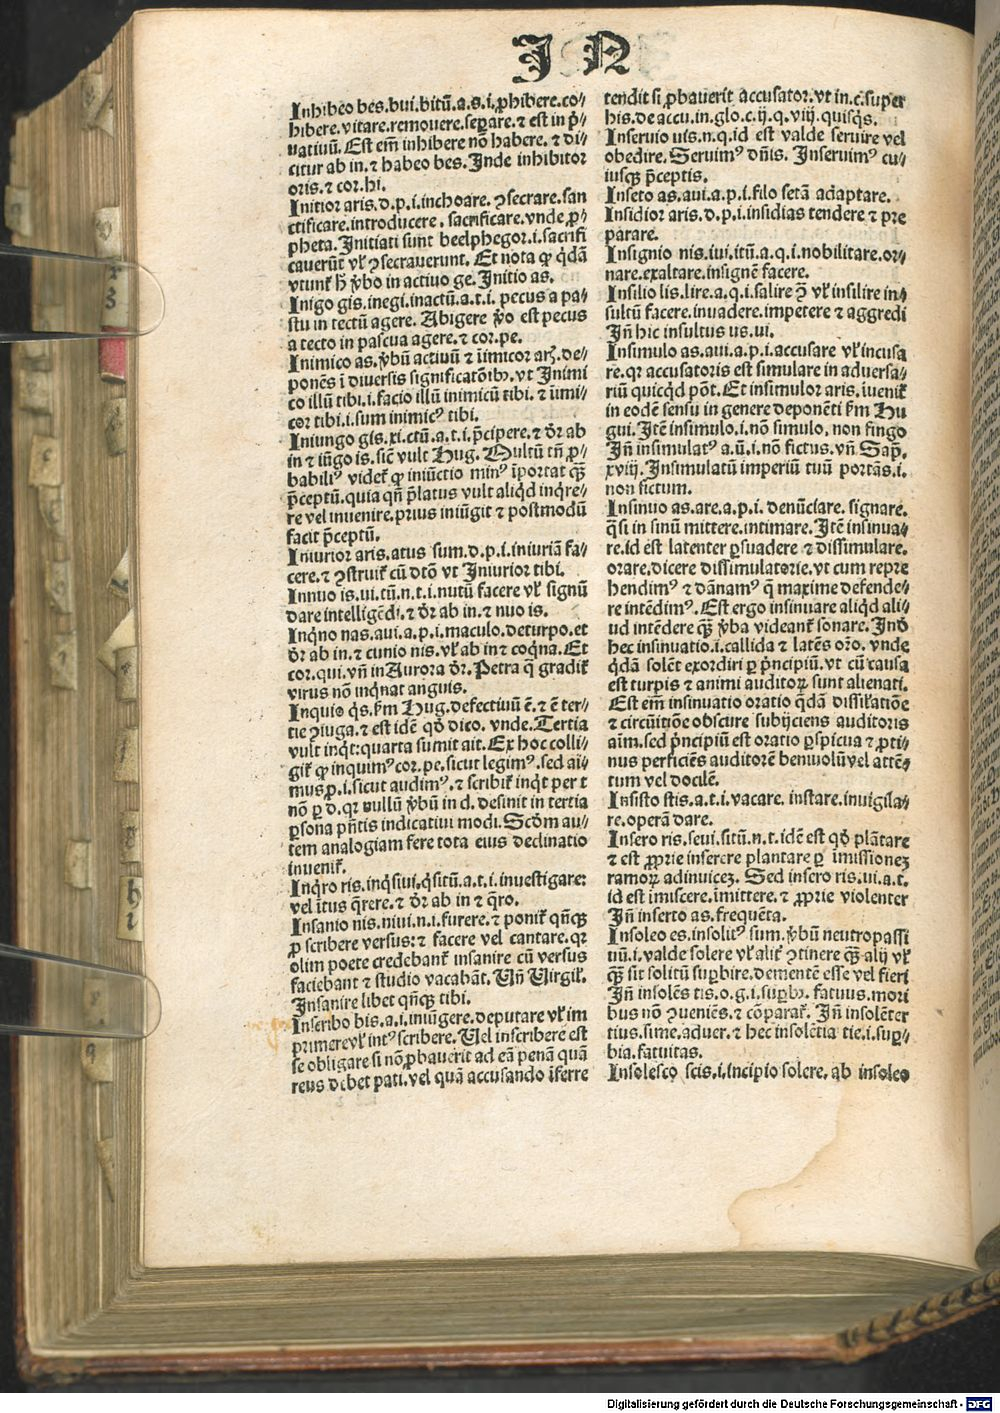 I N
Inhibeo bes.bui.bitū.a.s.i.ꝓhibere.co⸗
hibere.vitare.remouere.seꝑare.⁊ est in p̄⸗
uatiuū. Est em̄ inhibere nō habere. ⁊ di⸗
citur ab in.⁊ habeo bes. Inde inhibitor
oris.⁊ cor.hi.
Initior aris.d.p.i.inchoare. ꝯsecrare.san
ctificare.introducere. sacrificare.vnde.ꝓ⸗
pheta. Initiati sunt beelphegor.i.sacrifi
cauerūt vł ꝯsecrauerunt. Et nota ꝙ qdā
vtunt᷑ h̄ v̄bo in actiuo ge. Initio as.
Inigo gis.inegi.inactū.a.t.i. pecus a pa⸗
stu in tectū agere. Abigere v̄o est pecus
a tecto in pascua agere.⁊ cor.pe.
Inimico as.v̄bū actiuū ⁊ īimicor arꝭ.de⸗
ponēs ī diuersis significatōib⁹.vt Inimi
co illū tibi.i.facio illū inimicū tibi.⁊ inimi⸗
cor tibi.i.sum inimic⁹ tibi.
Iniungo gis.xi.ctū.a.t.i.p̄cipere.⁊ dr̄ ab
in ⁊ iūgo is.sic vult Hug. Multū tn̄ ꝓ⸗
babili⁹ videt᷑ ꝙ iniūctio min⁹ īportat qꝫ
p̄ceptū.quia qn̄ p̄latus vult aliqd inqre⸗
re vel inuenire.prius iniūgit ⁊ postmodū
facit p̄ceptū.
Iniurior aris.atus sum.d.p.i.iniuriā fa⸗
cere.⁊ ꝯstruit᷑ cū dtō vt Iniurior tibi.
Innuo is.ui.tū.n.t.i.nutū facere vł signū
dare intelligēdi.⁊ dr̄ ab in.⁊ nuo is.
Inqno nas.aui.a.p.i.maculo.deturpo.et
dr̄ ab in.⁊ cunio nis.vł ab in ⁊ coqna. Et
cor.qui.vn̄ in Aurora dr̄. Petra q̄ gradit᷑
virus nō inqnat anguis.
Inquio qs.ẜm Hug.defectiuū ē.⁊ ē ter⸗
tie ꝯiuga.⁊ est idē qd dico. vnde. Tertia
vult inqt:quarta sumit ait. Ex hoc colli⸗
git᷑ ꝙ inquim⁹ cor.pe.sicut legim⁹.sed ai⸗
mus ꝓ.i.sicut audim⁹.⁊ scribit᷑ inqt per t
nō ꝑ d.qꝛ nullū v̄bū in d.desinit in tertia
ꝑsona p̄ntis indicatiui modi. Scdm au⸗
tem analogiam fere tota eius declinatio
inuenit᷑.
Inqro ris.inqsiui.qsitū.a.t.i.inuestigare:
vel ītus q̄rere.⁊ dr̄ ab in ⁊ q̄ro.
Insanio nis.niui.n.i.furere.⁊ ponit᷑ qn̄qꝫ
ꝓ scribere versus:⁊ facere vel cantare.qꝛ
olim poete credebant᷑ insanire cū versus
faciebant ⁊ studio vacabāt. Vn̄ Virgil.
Insanire libet qn̄qꝫ tibi.
Inscribo bis.a.i.iniūgere.deputare vł im
primere vł int⁹ scribere. Vel inscribere est
se obligare si nō ꝓbauerit ad eā penā quā
reus debet pati.vel quā accusando īferre
tendit si ꝓbauerit accusator.vt in.c.super
his.de accu.in.glo.c.ij.q.viij.quisqs.
Inseruio uis.n.q.id est valde seruire vel
obedire. Seruim⁹ dn̄is. Inseruim⁹ cu⸗
iusqꝫ p̄ceptis.
Inseto as.aui.a.p.i.filo setā adaptare.
Insidior aris.d.p.i.insidias tendere ⁊ pre
parare.
Insignio nis.iui.itū.a.q.i.nobilitare.or⸗
nare.exaltare.insignē facere.
Insilio lis.lire.a.q.i.salire ꝯ̄ vł insilire in⸗
sultū facere.inuadere.impetere ⁊ aggredi
Jn̄ hic insultus us.ui.
Insimulo as.aui.a.p.i.accusare vł incusa
re.qꝛ accusatoris est simulare in aduersa⸗
riū quicqd pōt. Et insimulor aris.iuenit᷑
in eodē sensu in genere deponēti ẜm Hu
gui. Itē insimulo.i.nō simulo. non fingo
Jn̄ insimulat⁹ a.ū.i.nō fictus.vn̄ Sap̄.
xviij. Insimulatū imperiū tuū portās.i.
non fictum.
Insinuo as.are.a.p.i.denūciare.signare.
q̄si in sinū mittere.intimare. Itē insinua⸗
re.id est latenter ꝑsuadere ⁊ dissimulare.
orare.dicere dissimulatorie.vt cum repre
hendim⁹ ⁊ dānam⁹ q̄ maxime defende⸗
re intēdim⁹. Est ergo insinuare aliqd ali⸗
ud intēdere qꝫ v̄ba videant᷑ sonare. Indr̄
hec insinuatio.i.callida ⁊ latēs orō. vnde
qdā solēt exordiri ꝑ p̄ncipiū.vt cū causa
est turpis ⁊ animi auditoꝝ sunt alienati.
Est em̄ insinuatio oratio qdā dissilatiōe
⁊ circūitiōe obscure subijciens auditoris
aīm.sed p̄ncipiū est oratio ꝑspicua ⁊ ꝓti⸗
nus perficiēs auditorē beniuolū vel attē⸗
tum vel docilē.
Insisto stis.a.t.i.vacare. instare.inuigila⸗
re.operā dare.
Insero ris.seui.sitū.n.t.idē est qd plātare
⁊ est ꝓprie inserere plantare ꝑ imissionēꝫ
ramoꝝ adinuicēꝫ. Sed insero ris.ui.a.t.
id est imiscere.īmittere.⁊ ꝓprie violenter
Jn̄ inserto as.frequēta.
Insoleo es.insolit⁹ sum.v̄bū neutropassi
uū.i.valde solere vł alit᷑ ꝯtinere qꝫ alij vł
qꝫ sit solitū suꝑbire.dementē esse vel fieri
Jn̄ insolēs tis.o.g.i.suꝑb⁹. fatuus.mori
bus nō ꝯueniēs.⁊ cōparat᷑. Jn̄ insolēter
tius.sime.aduer.⁊ hec insolētia tie.i.suꝑ⸗
bia.fatuitas.
Insolesco scis.i.incipio solere. ab insoleo
Digitalisierung gefördert durch die Deutsche Forschungsgemeinschaft - DFG